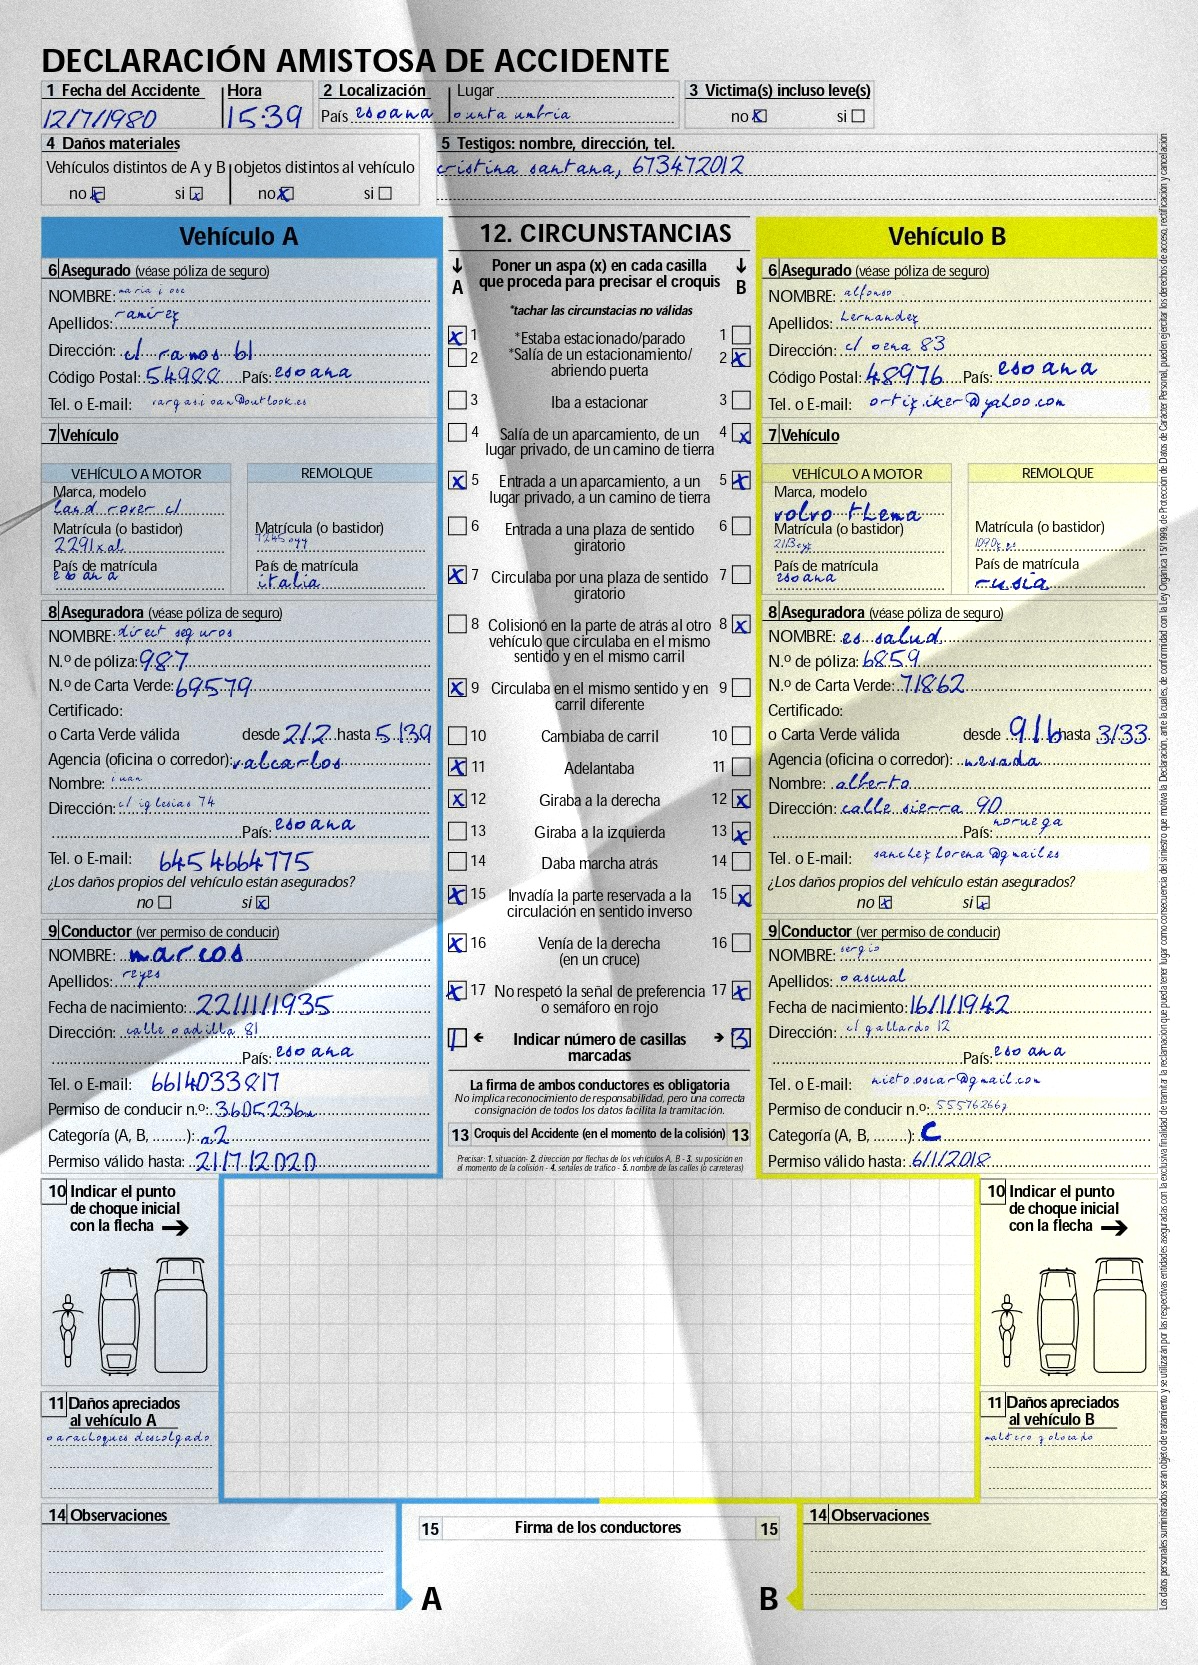 DECLARACIÓN AMISTOSA DE ACCIDENTE
1 Fecha del Accidente Hora 2 Localización Lugar 3 Victima(s) incluso leve(s)
12/7/1980 15:39 País esoana ounta umbria no x si
4 Daños materiales 5 Testigos: nombre, dirección, tel.
Vehículos distintos de A y B objetos distintos al vehículo cristina santana, 673472012
no x si x no x si
Vehículo A
6 Asegurado (véase póliza de seguro)
NOMBRE: maria j ose
Apellidos: ramirez
Dirección: c/ ramos 61
Código Postal: 54988 País: esoana
Tel. o E-mail: vargasjoan@outlook.es
7 Vehículo
VEHÍCULO A MOTOR REMOLQUE
Marca, modelo
land rover cl
Matrícula (o bastidor) Matrícula (o bastidor)
2291xal 7245oyy
País de matrícula País de matrícula
esoana italia
8 Aseguradora (véase póliza de seguro)
NOMBRE: direct seguros
N.º de póliza: 987
N.º de Carta Verde: 69579
Certificado:
o Carta Verde válida desde 2/2 hasta 5/39
Agencia (oficina o corredor): valcarlos
Nombre: juan
Dirección: c/ iglesias 74
País: esoana
Tel. o E-mail: 6454664775
¿Los daños propios del vehículo están asegurados?
no si x
9 Conductor (ver permiso de conducir)
NOMBRE: marcos
Apellidos: reyes
Fecha de nacimiento: 22/11/1935
Dirección: calle oadilla 81
País: esoana
Tel. o E-mail: 6614033817
Permiso de conducir n.º:
Categoría (A, B, ........): a2
Permiso válido hasta: 21/7/2020
12. CIRCUNSTANCIAS
A Poner un aspa (x) en cada casilla que proceda para precisar el croquis B
*tachar las circunstacias no válidas
x 1 *Estaba estacionado/parado 1
2 *Salía de un estacionamiento/ 2 x
abriendo puerta
3 Iba a estacionar 3
4 Salía de un aparcamiento, de un 4 x
lugar privado, de un camino de tierra
x 5 Entrada a un aparcamiento, a un 5 x
lugar privado, a un camino de tierra
6 Entrada a una plaza de sentido 6
giratorio
x 7 Circulaba por una plaza de sentido 7
giratorio
8 Colisionó en la parte de atrás al otro 8 x
vehículo que circulaba en el mismo
sentido y en el mismo carril
x 9 Circulaba en el mismo sentido y en 9
carril diferente
10 Cambiaba de carril 10
x 11 Adelantaba 11
x 12 Giraba a la derecha 12 x
13 Giraba a la izquierda 13 x
14 Daba marcha atrás 14
x 15 Invadía la parte reservada a la 15 x
circulación en sentido inverso
x 16 Venía de la derecha 16
(en un cruce)
x 17 No respetó la señal de preferencia 17 x
o semáforo en rojo
1 Indicar número de casillas 3
marcadas
La firma de ambos conductores es obligatoria
No implica reconocimiento de responsabilidad, pero una correcta
consignación de todos los datos facilita la tramitación.
13 Croquis del Accidente (en el momento de la colisión) 13
Precisar: 1. situación- 2. dirección por flechas de los vehículos A, B - 3. su posición en
el momento de la colisión - 4. señales de tráfico - 5. nombre de las calles (o carreteras)
Vehículo B
6 Asegurado (véase póliza de seguro)
NOMBRE: alfonso
Apellidos: hernandez
Dirección: c/ oena 83
Código Postal: 48976 País: esoana
Tel. o E-mail: ortiz.iker@yahoo.com
7 Vehículo
VEHÍCULO A MOTOR REMOLQUE
Marca, modelo
volvo thema
Matrícula (o bastidor) Matrícula (o bastidor)
País de matrícula País de matrícula
esoana rusia
8 Aseguradora (véase póliza de seguro)
NOMBRE: es salud
N.º de póliza: 6859
N.º de Carta Verde: 71862
Certificado:
o Carta Verde válida desde 9/6 hasta 3/33
Agencia (oficina o corredor): nevada
Nombre: alberto
Dirección: calle sierra 90
País: noruega
Tel. o E-mail: sanchezlorena@gmail.es
¿Los daños propios del vehículo están asegurados?
no x si x
9 Conductor (ver permiso de conducir)
NOMBRE: sergio
Apellidos: oascual
Fecha de nacimiento: 16/1/1942
Dirección: c/ gallardo 12
País: esoana
Tel. o E-mail: nieto.oscar@gmail.com
Permiso de conducir n.º: 55576266z
Categoría (A, B, ........): c
Permiso válido hasta: 6/1/2018
10 Indicar el punto
de choque inicial
con la flecha
11 Daños apreciados
al vehículo A
oarachoques descolgado
14 Observaciones
10 Indicar el punto
de choque inicial
con la flecha
11 Daños apreciados
al vehículo B
maltero
14 Observaciones
15 Firma de los conductores 15
A B
Los datos personales suministrados serán objeto de tratamiento y se utilizarán por las respectivas entidades aseguradas con la exclusiva finalidad de tramitar la reclamación que pueda tener lugar como consecuencia del siniestro que motiva la Declaración, ante la cuales, de conformidad con la Ley Orgánica 15/1999, de Protección de Datos de Carácter Personal, pueden ejercitar los derechos de acceso, rectificación y cancelación